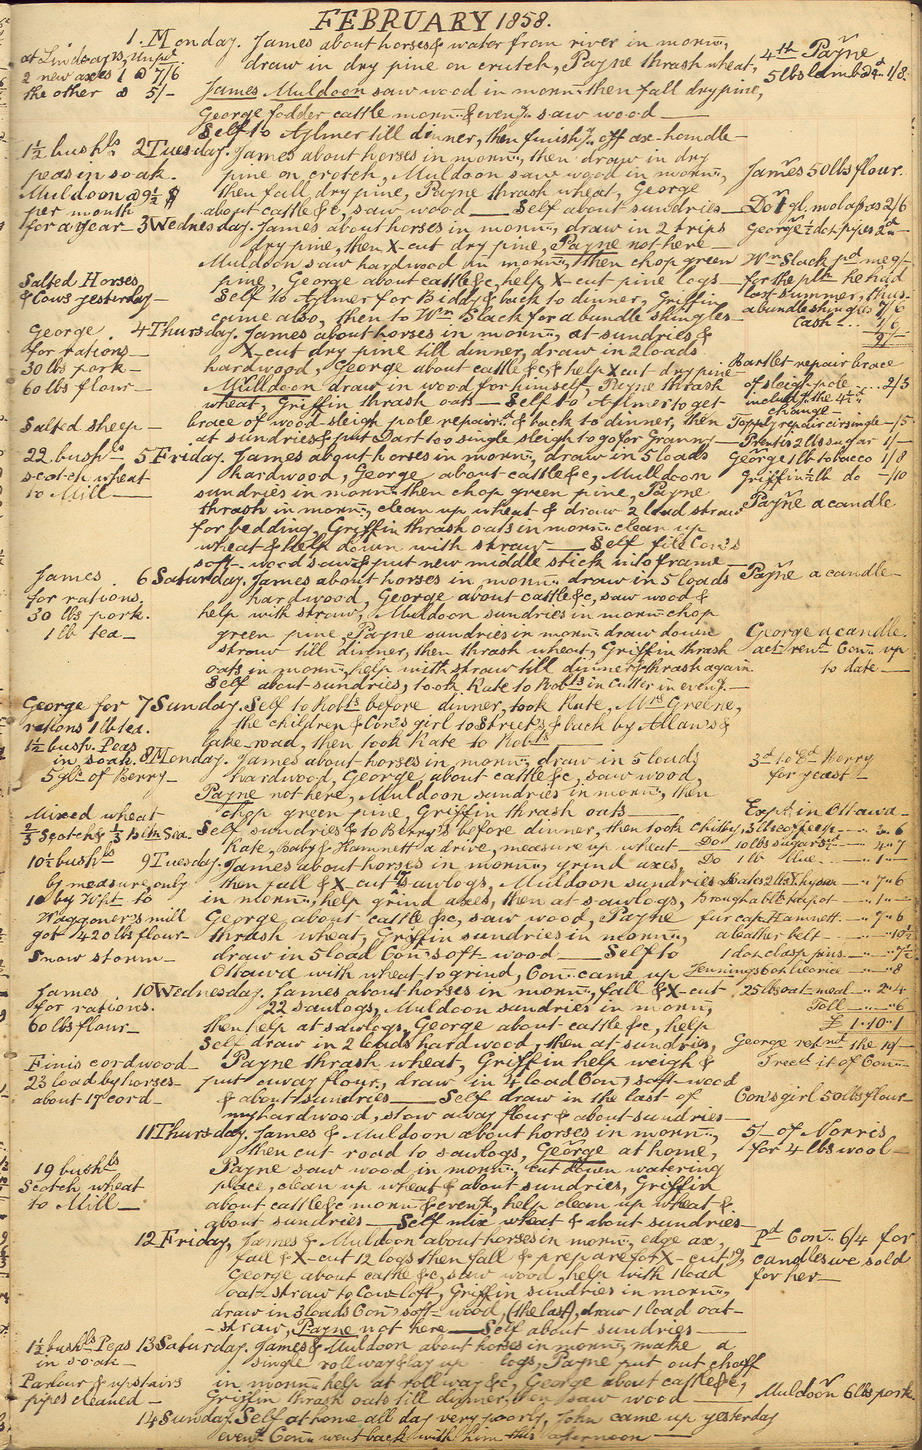 FEBRUARY 1858.
1. Monday. James about horses & water from river in morn:g,
draw in dry pine on crutch, Payne thrash wheat,
James Muldoon saw wood in morn:g then fall dry pine,
George fodder cattle morn:g & even:g, saw wood
Self to Aylmer till dinner, then finish:g off axe-handle
at Lindsay's,
2 new axes 1 @ 7/6
the other @ 5/-
4th Payne
5 lbs lamb @ 4d 1/8
1½ bush:ls
peas in soak.
Muldoon @ 9½ $
per month
for a year
2 Tuesday. James about horses in morn:g, then draw in dry
pine on crotch, Muldoon saw wood in morn:g,
then fall dry pine, Payne thrash wheat, George
about cattle &c, saw wood — Self about sundries
James 50 lbs flour.
Do 1 gl. molasses 2/6
3 Wednesday. James about horses in morn:g, draw in 2 trips
dry pine, then X-cut dry pine, Payne not here —
Muldoon saw hardwood in morn:g, then chop green
pine, George about cattle &c, help X-cut pine logs
Self to Aylmer for Biddy & back to dinner, Griffin
came also, then to Wm Slack for a bundle shingles
George ½ doz pipes 2d
Wm Slack pd me 9/-
for the plh he had
last summer, thus
a bundle shingles 7/6
Cash — 1/6
9/-
Salted Horses
& Cows yesterday —
George
for rations —
30 lbs pork —
60 lbs flour —
4 Thursday. James about horses in morn:g, at sundries &
X-cut dry pine till dinner, draw in 2 loads
hardwood, George about cattle &c, & help X-cut dry pine
Mulldoon draw in wood for himself, Payne thrash
wheat, Griffin thrash oats — Self to Aylmer to get
brace of wood-sleigh pole repair:d & back to dinner, then
at sundries & put Dart to single sleigh to go for Granny —
Bartlet repair brace
of sleigh pole ... 2/3
includ:g the 4d
change —
Topply repair cirsingle -/5
Prentis 2 lbs sugar 1/-
Salted sheep —
22 bush:ls
scotch wheat
to Mill —
5 Friday. James about horses in morn:g, draw in 5 loads
hardwood, George about cattle &c, Mulldoon
sundries in morn:g then chop green pine, Payne
thrash in morn:g, clean up wheat & draw 2 load straw
for bedding, Griffin thrash oats in morn:g clean up
wheat & help down with straw — Self file Con's
soft-wood saw & put new middle stick into frame —
George 1 lb tobacco 1/8
Griffin ½ lb do -/10
Payne a candle
James
for rations,
30 lbs pork.
1 lb tea —
6 Saturday. James about horses in morn:g draw in 5 loads
hardwood, George about cattle &c, saw wood &
help with straw, Muldoon sundries in morn:g chop
green pine, Payne sundries in morn:g draw down
straw till dinner, then thrash wheat, Griffin thrash
oats in morn:g, help with straw till dinner & thrash again
Self about sundries, took Kate to Robts in Cutter in even:g —
Payne a candle —
George a candle.
act rent Con:n up
to date —
George for
rations 1 lb tea.
1½ bush. Peas
in soak.
7 Sunday. Self to Robts before dinner, took Kate, Mrs Greene,
the children & Con's girl to Street's & back by Allan's &
lake-road, then took Kate to Robts —
5 gls of Berry —
8 Monday. James about horses in morn:g, draw in 5 loads
hardwood, George about cattle &c, saw wood,
Payne not here, Muldoon sundries in morn:g, then
chop green pine, Griffin thrash oats —
Self sundries & to Berry's before dinner, then took
Kate, Baby & Hamnett a drive, measure up wheat —
3d to Ed Merry
for yeast —
Mixed wheat
⅔ Scotch & ⅓ Black Sea.
10½ bush:ls
by measure, only
10 by W:gt to
Waggoner's mill
got 420 lbs flour —
Snow storm —
9 Tuesday. James about horses in morn:g, grind axes,
then fall & X-cut 17 sawlogs, Muldoon sundries
in morn:g, help grind axes, then at sawlogs,
George about cattle &c, saw wood, Payne
thrash wheat, Griffin sundries in morn:g,
draw in 5 load Con:s soft-wood — Self to
Ottawa with wheat to grind, Con:n came up
Exp:s in Ottawa —
3 lbs coffee — 3 " 6
Do 10 lbs sugar 5½d — 4 " 7
Do 1 lb blue — " 1 "
Bates 2 lbs T. hyson — " 7 " 6
Brough a bl:k teapot — " 1 "
fur cap Hamnett — " 7 " 6
a leather belt — " " 10½
1 doz clasp pins — " " 7½
Jennings 6 oz licorice — " " 8
25 lbs oat-meal — " 2 " 4
Toll — " " 6
£ 1 . 10 . 1
James
for rations.
60 lbs flour —
10 Wednesday. James about horses in morn:g, fall & X-cut
22 sawlogs, Muldoon sundries in morn:g,
then help at sawlogs, George about cattle &c, help
Self draw in 2 loads hardwood, then at sundries,
Payne thrash wheat, Griffin help weigh &
put away flour, draw in 4 load Con:s soft-wood
& about sundries — Self draw in the last of
my hardwood, stow away flour & about sundries —
George ret:nd the 10/-
I rec:d it of Con:n —
Con's girl 50 lbs flour —
Finis cordwood —
23 load by horses —
about 17 cord —
11 Thursday. James & Muldoon about horses in morn:g,
then cut road to sawlogs, George at home,
Payne saw wood in morn:g, cut down watering
place, clean up wheat & about sundries, Griffin
about cattle &c morn:g & even:g, help clean up wheat &
about sundries — Self mix wheat & about sundries —
5/- of Norris
for 4 lbs wool —
19 bush:ls
Scotch wheat
to Mill —
12 Friday, James & Muldoon about horses in morn:g, edge ax,
fall & X-cut 12 logs then fall & prepare for X-cut 19,
George about cattle &c, saw wood, help with 1 load
oat-straw to Cow-loft, Griffin sundries in morn:g,
draw in 3 loads Con:s soft-wood, (the last), draw 1 load oat-
straw, Payne not here — Self about sundries —
Pd Con:n 6/4 for
candles we sold
for her —
1½ bush:ls Peas
in soak —
Parlour & upstairs
pipes cleaned —
13 Saturday. James & Muldoon about horses in morn:g, make a
single rollway & lay up logs, Payne put out chaff
in morn:g help at rollway &c, George about cattle &c,
Griffin thrash oats till dinner, then saw wood —
Muldoon 6 lbs pork
14 Sunday. Self at home all day very poorly, John came up yesterday
even:g Con:n went back with him this afternoon —